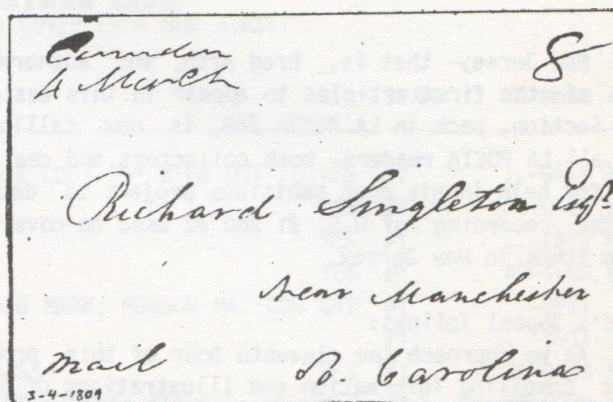 Camden
4 March 8
Richard Singleton Esqr
near Manchester
mail S. Carolina
3-4-1809